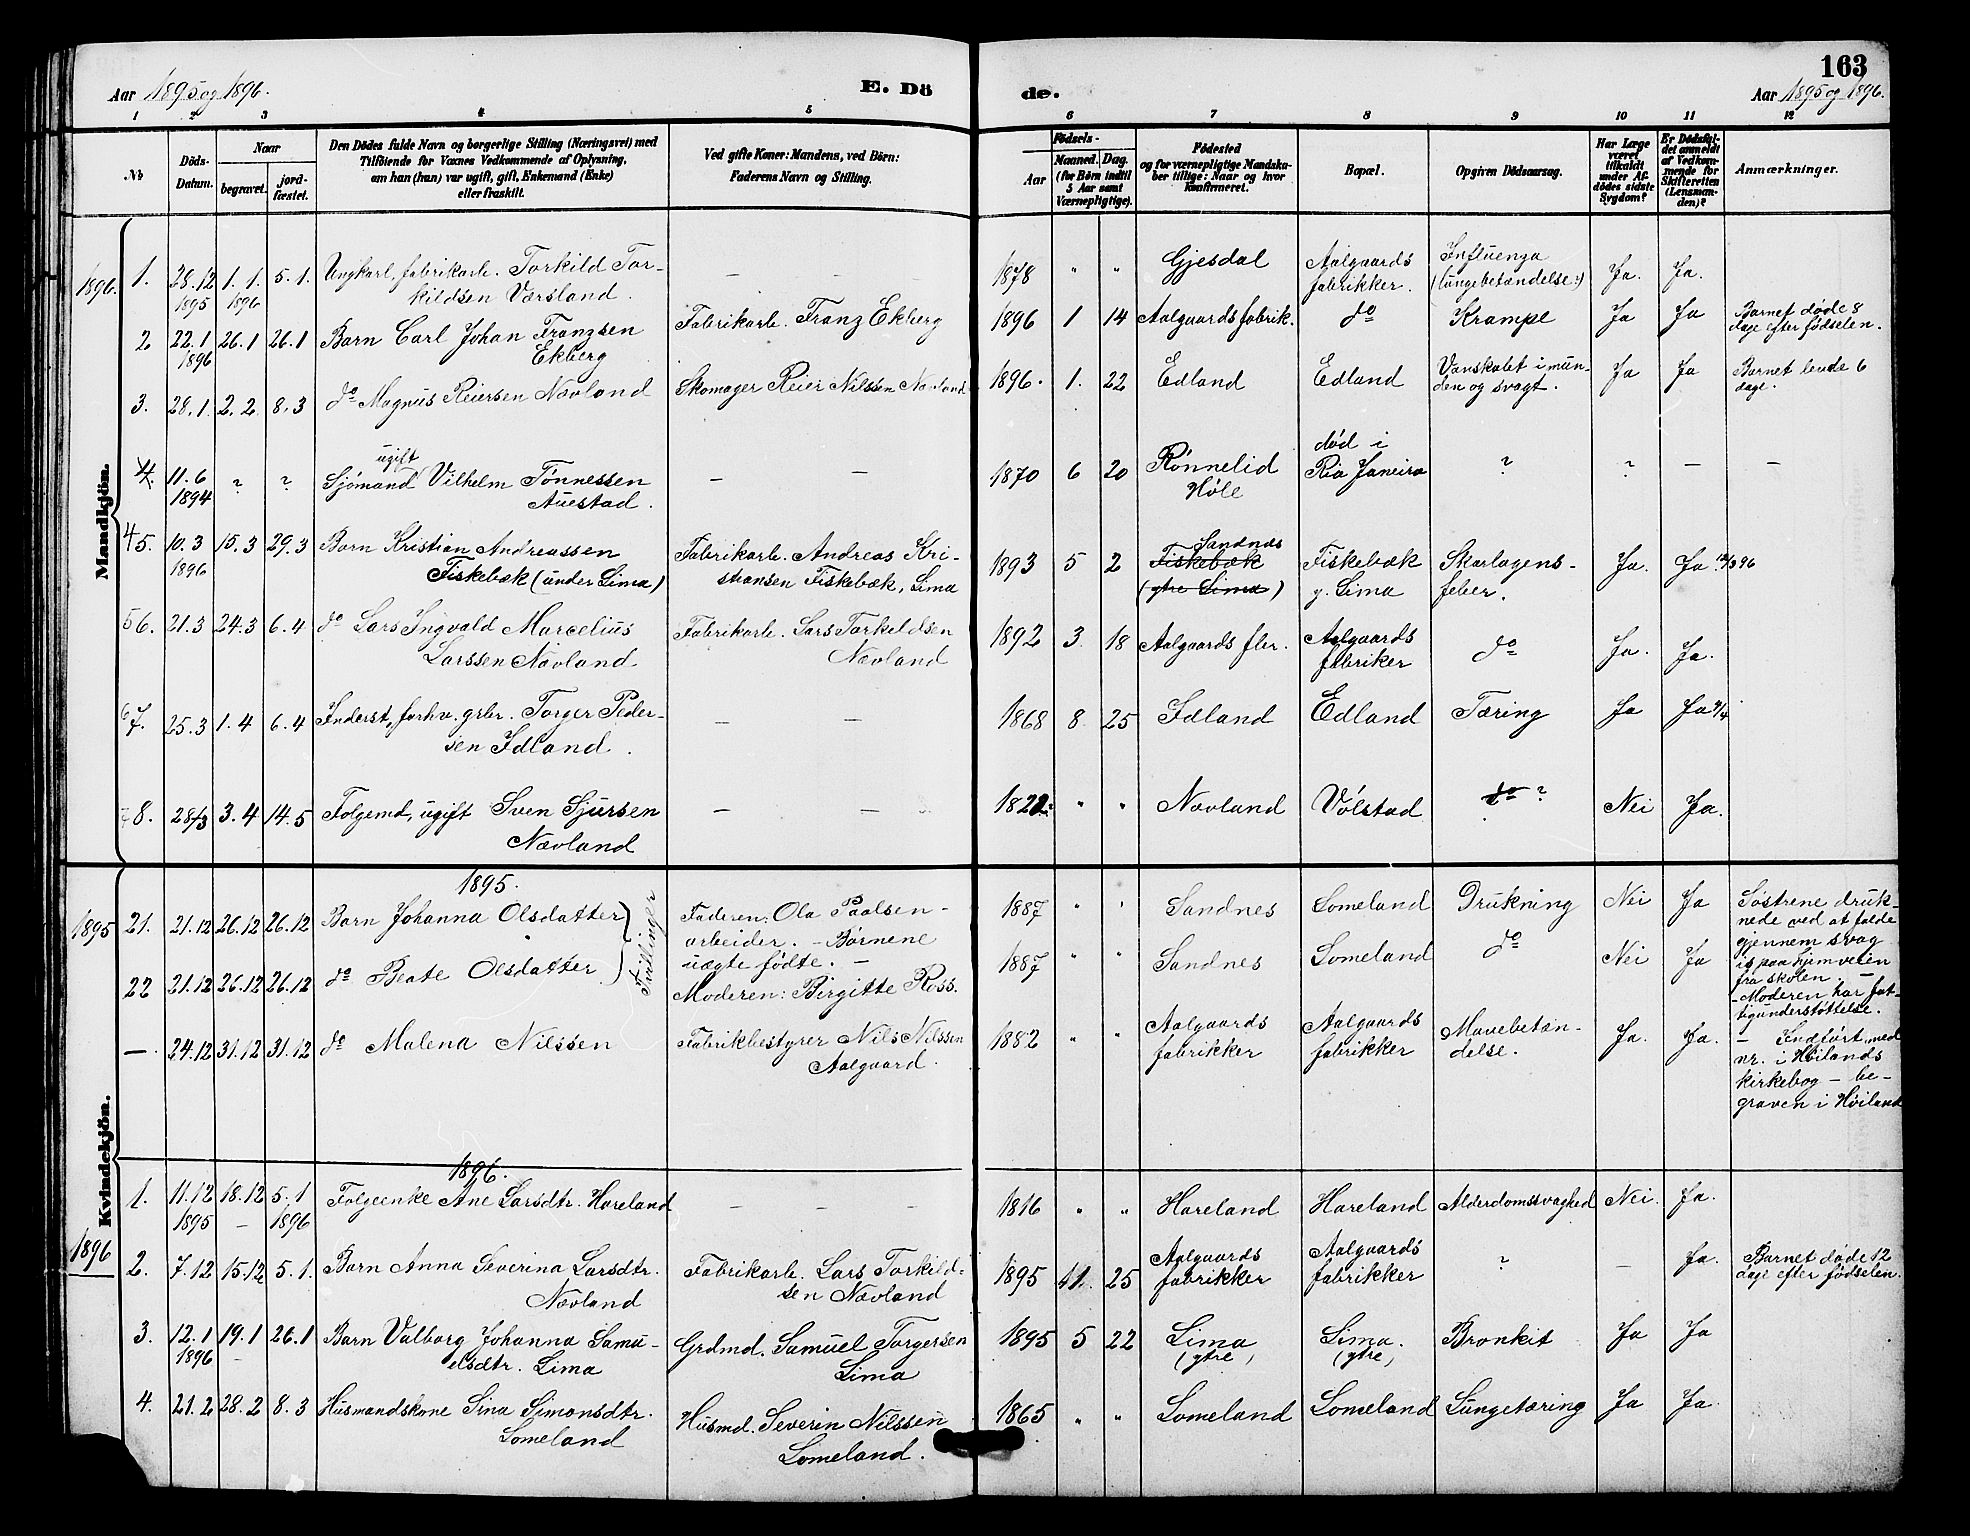 163
Aar 1895 og 1896.
E. Dö
de.
Aar 1895 og 1896.
1 2 3 4 5 6 7 8 9 10 11 12
No
Döds-
Datum.
Naar
begravet.
jord-
fæstet.
Den Dödes fulde Navn og borgerlige Stilling (Næringsvei) med
Tilföiende for Voxnes Vedkommende af Oplysning,
om han (hun) var ugift, gift, Enkemand (Enke)
eller fraskilt.
Ved gifte Koner: Mandens, ved Börn:
Faderens Navn og Stilling.
Födsels-
Aar
Maaned.
Dag.
(for Börn indtil
5 Aar samt
Værnepligtige).
Födested
og for værnepligtige Mandska-
ber tillige: Naar og hvor
konfirmeret.
Bopæl.
Opgiven Dödsaarsag.
Har Læge
været
tilkaldt
under Af-
dödes sidste
Sygdom?
Er Dödsfal-
det anmeldt
af Vedkom-
mende for
Skifteretten
(Lensman-
den)?
Anmærkninger.
Mandkjön.
1896.
1. 28.12 1.1. 5.1. Ungkarl, fabrikarb. Torkild Tor- — — 1878 " " Gjesdal Aalgaards Influenza Ja. Ja.
1895 1896 kildsen Værsland. fabrikker. (lungebetændelse?)
2 22.1 26.1 26.1 Barn Carl Johan Franzsen Fabrikarb. Franz Ekberg 1896 1 14 Aalgaards fabrik. do Krampe Ja Ja Barnet døde 8
1896 Ekberg dage efter fødselen.
3. 28.1. 2.2. 8.3 do Magnus Reiersen Nævland Skomager Reier Nilssen Nævland 1896. 1. 22 Edland Edland Vanskabt i mun- Ja Ja Barnet levde 6
den og svagt. dage.
4. 11.6 ? ? Sjómand ugift Vilhelm Tønnessen — — 1870 6 20 Rønnelid død i ? ? — —
1894 Auestad. Høle Rio Janeiro
4 5. 10.3 15.3 29.3 Barn Kristian Andreassen Fabrikarb. Andreas Kri- 1893 5 2 Sandnæs Fiskebæk Fiskebæk Skarlagens- Ja. Ja. 12/3 96
1896 Fiskebæk (under Lima) stiansen Fiskebæk, Lima (ytre Lima) y. Lima feber.
5 6. 21.3 24.3 6.4 do Lars Ingvald Marcelius Fabrikarb. Lars Torkildsen 1892 3. 18 Aalgaards fbr. Aalgaards do Ja. Ja.
Larssen Nævland Nævland fabriker
6 7. 25.3 1.4 6.4 Inderst, forhv. grbr. Torger Peder- — — 1868 8. 25 Idland Edland Tæring Ja Ja 2/4
sen Idland.
7 8. 28/3 3.4 14.5 Folgemd, ugift Sven Sjursen — — 1822. " " Nævland Vólstad do ? Nei Ja.
Nævland
Kvindekjön.
1895
1895.
21. 21.12 26.12 26.12 Barn Johanna Olsdatter Faderen: Ola Paalsen- 1887 " " Sandnes Lomeland Drukning Nei Ja Søstrene druk-
Tvillinger arbeider. - Børnene nede ved at falde
uægte fødte. — gjennem svag
22 21.12 26.12 26.12 do Beate Olsdatter Moderen: Birgitte Ross. 1887 " " Sandnes Lomeland do Nei Ja is paa hjemveien
fra skolen. —
- Moderen har fat-
tigunderstøttelse.
—. 24.12 31.12 31.12 do Malena Nilssen Fabrikbestyrer Nils Nilssen 1882 " " Aalgaards Aalgaards Mavebetæn- Ja. Ja. — Indført med
Aalgaard. fabrikker fabrikker delse. nr. i Høilands
kirkebog - be-
graven i Høiland
1896
1896.
1. 11.12 18.12 5.1 Folgeenke Ane Larsdtr. Hareland — — — 1816 " " Hareland Hareland Alderdomssvaghed Nei. Ja.
1895 — 1896
2. 7.12 15.12 5.1. Barn Anna Severina Larsdtr. Fabrikarb. Lars Torkild- 1895 11. 25 Aalgaards Aalgaards ? — Ja. Barnet døde 12
Nævland sen Nævland fabrikker fabrikker dage efter fødselen.
3. 12.1 19.1 26.1 Barn Valborg Johanna Samu- Grdmd. Samuel Torgersen 1895 5 22 Lima Lima. Bronkit Ja Ja
1896 — elsdtr. Lima Lima (ytre) (ytre)
4. 21.2 28.2 8.3 Husmandskone Sina Simonsdtr. Husmd. Severin Nilssen 1865 " " Lomeland Lomeland Lungetæring Ja Ja.
Lomeland Lomeland.